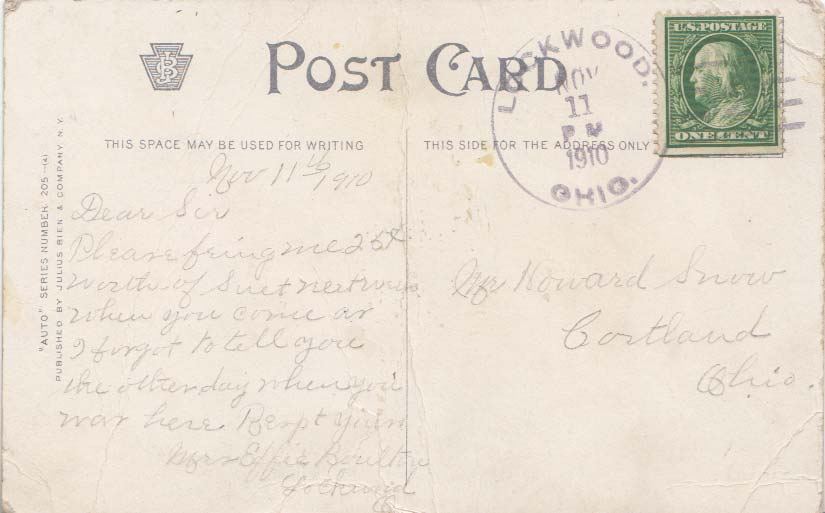 POST CARD
THIS SPACE MAY BE USED FOR WRITING
THIS SIDE FOR THE ADDRESS ONLY
U.S. POSTAGE
ONE CENT
LOCKWOOD,
NOV
11
PM
1910
OHIO.
"AUTO" SERIES NUMBER 205—(4)
PUBLISHED BY JULIUS BIEN & COMPANY, N. Y.
Nov 11th 1910
Dear Sir
Please bring me 25¢
worth of
when you come as
I forgot to tell you
the other day when you
was here. Respt yours
Mrs Effie
Mr Howard Snow
Cortland
Ohio.